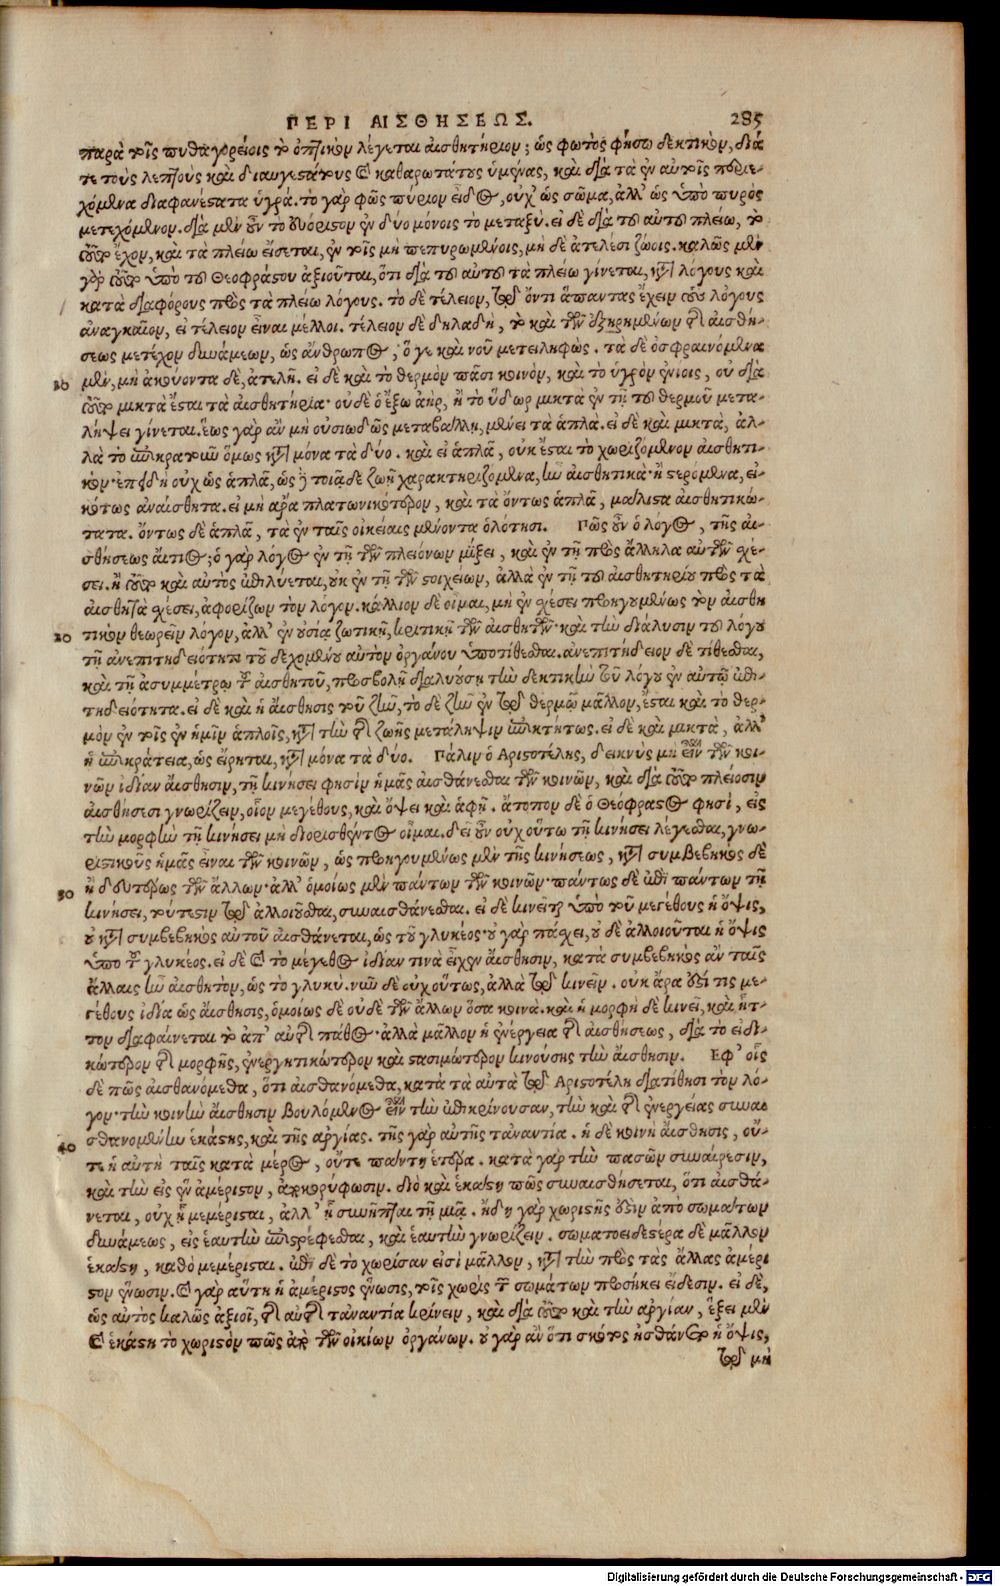 ΠΕΡΙ ΑΙΣΘΗΣΕΩΣ. 285
παρὰ τοῖς πυθαγορείοις τὸ ὀπτικὸν λέγεται αἰσθητήριον; ὡς φωτὸς φήσω δεκτικὸν, διά
τε τοὺς λεπτοὺς καὶ διαυγεστάτους καὶ καθαρωτάτους ὑμένας, καὶ διὰ τὰ ἐν αὐτοῖς περιε-
χόμενα διαφανέστατα ὑγρά. τὸ γὰρ φῶς πύριον εἶδος, οὐχ ὡς σῶμα, ἀλλ' ὡς ὑπὸ πυρὸς
μετεχόμενον. διὰ μὲν οὖν τὸ εὐόριστον ἐν δύο μόνοις τὸ μεταξύ. εἰ δὲ διὰ τοῦ αὐτοῦ πλείω, τὸ
τοῦτο ἔχον, καὶ τὰ πλείω εἴσεται, ἐν τοῖς μὴ πεπηρωμένοις, μὴ δὲ ἀτελέσι ζώοις. καλῶς μὲν
γὰρ τοῦτο ὑπὸ τοῦ Θεοφράστου ἀξιοῦται, ὅτι διὰ τοῦ αὐτοῦ τὰ πλείω γίνεται, κατὰ λόγους καὶ
κατὰ διαφόρους πρὸς τὰ πλείω λόγους. τὸ δὲ τέλειον, τῷ ὄντι ἅπαντας ἔχειν τοὺς λόγους
ἀναγκαῖον, εἰ τέλειον εἶναι μέλλοι. τέλειον δὲ δηλαδὴ, τὸ καὶ τῶν ἐξῃρημένων τῆς αἰσθή-
σεως μετέχον δυνάμεων, ὡς ἄνθρωπος, ὅ γε καὶ νοῦ μετειληφώς. τὰ δὲ ὀσφραινόμενα
10 μὲν, μὴ ἀκούοντα δὲ, ἀτελῆ. εἰ δὲ καὶ τὸ θερμὸν πᾶσι κοινὸν, καὶ τὸ ὑγρὸν ἐνίοις, οὐ διὰ
τοῦτο μικτὰ ἔσται τὰ αἰσθητήρια· οὐδὲ ὁ ἔξω ἀὴρ, ἢ τὸ ὕδωρ μικτὰ ἐν τῇ τοῦ θερμοῦ μετα-
λήψει γίνεται. ἕως γὰρ ἂν μὴ οὐσιωδῶς μεταβάλλῃ, μένει τὰ ἁπλᾶ. εἰ δὲ καὶ μικτὰ, ἀλ-
λὰ τὸ ἐπικρατοῦν ὅμως κατὰ μόνα τὰ δύο. καὶ εἰ ἁπλᾶ, οὐκ ἔσται τὸ χωριζόμενον αἰσθητι-
κόν· ἐπειδὴ οὐχ ὡς ἁπλᾶ, ὡς τοιᾷδε ζωῇ χαρακτηριζόμενα, ἦν αἰσθητικά· ἧ στερόμενα, εἰ-
κότως ἀναίσθητα. εἰ μὴ ἄρα πλατωνικώτερον, καὶ τὰ ὄντως ἁπλᾶ, μάλιστα αἰσθητικώ-
τατα. ὄντως δὲ ἁπλᾶ, τὰ ἐν ταῖς οἰκείαις μένοντα ὁλότησι. Πῶς οὖν ὁ λόγος, τῆς αἰ-
σθήσεως αἴτιος; ὁ γὰρ λόγος ἐν τῇ τῶν πλειόνων μίξει, καὶ ἐν τῇ πρὸς ἄλληλα αὐτῶν σχέ-
σει. ἢ τοῦτο καὶ αὐτὸς ἐπιλύεται, οὐκ ἐν τῇ τῶν στοιχείων, ἀλλὰ ἐν τῇ τοῦ αἰσθητηρίου πρὸς τὰ
αἰσθητὰ σχέσει, ἀφορίζων τὸν λόγον. κάλλιον δὲ οἶμαι, μὴ ἐν σχέσει προηγουμένως τὸν αἰσθη
20 τικὸν θεωρεῖν λόγον, ἀλλ' ἐν οὐσίᾳ ζωτικῇ, κριτικῇ τῶν αἰσθητῶν· καὶ τὴν διάλυσιν τοῦ λόγου
τῇ ἀνεπιτηδειότητι τοῦ δεχομένου αὐτὸν ὀργάνου ὑποτίθεσθαι. ἀνεπιτήδειον δὲ τίθεσθαι,
καὶ τῇ ἀσυμμέτρῳ τοῦ αἰσθητοῦ, προσβολῇ διαλυούσῃ τὴν δεκτικὴν τοῦ λόγου ἐν αὐτῷ ἐπι-
τηδειότητα. εἰ δὲ καὶ ἡ αἴσθησις τοῦ ζῆν, τὸ δὲ ζῆν ἐν τῷ θερμῷ μᾶλλον, ἔσται καὶ τὸ θερ-
μὸν ἐν τοῖς ἐν ἡμῖν ἁπλοῖς, κατὰ τὴν τῆς ζωῆς μετάληψιν ἐπικτήτως. εἰ δὲ καὶ μικτὰ, ἀλλ'
ἡ ἐπικράτεια, ὡς εἴρηται, κατὰ μόνα τὰ δύο. Πάλιν ὁ Ἀριστοτέλης, δεικνὺς μὴ εἶναι τῶν κοι-
νῶν ἰδίαν αἴσθησιν, τῇ κινήσει φησὶν ἡμᾶς αἰσθάνεσθαι τῶν κοινῶν, καὶ διὰ τοῦτο πλείοσιν
αἰσθήσεσι γνωρίζειν, οἷον μεγέθους, καὶ ὄψει καὶ ἁφῇ. ἄτοπον δὲ ὁ Θεόφραστος φησὶ, εἰς
τὴν μορφὴν τῇ κινήσει μὴ διορισθέντος οἶμαι. δεῖ οὖν οὐχ οὕτω τῇ κινήσει λέγεσθαι, γνω-
ριστικοὺς ἡμᾶς εἶναι τῶν κοινῶν, ὡς προηγουμένως μὲν τῆς κινήσεως, κατὰ συμβεβηκὸς δὲ
30 ἢ δευτέρως τῶν ἄλλων· ἀλλ' ὁμοίως μὲν πάντων τῶν κοινῶν· πάντως δὲ ἐπὶ πάντων τῇ
κινήσει, τουτέστιν τῷ ἀλλοιοῦσθαι, συναισθάνεσθαι. εἰ δὲ κινεῖται ὑπὸ τοῦ μεγέθους ἡ ὄψις,
οὐ κατὰ συμβεβηκὸς αὐτοῦ αἰσθάνεται, ὡς τοῦ γλυκέος· οὐ γὰρ πάσχει, οὐδὲ ἀλλοιοῦται ἡ ὄψις
ὑπὸ τοῦ γλυκέος. εἰ δὲ καὶ τὸ μέγεθος ἰδίαν τινὰ εἶχεν αἴσθησιν, κατὰ συμβεβηκὸς ἂν ταῖς
ἄλλαις ἦν αἰσθητὸν, ὡς τὸ γλυκύ. νῦν δὲ οὐχ οὕτως, ἀλλὰ τῷ κινεῖν. οὐκ ἄρα ἐστί τις με-
γέθους ἰδία ὡς αἴσθησις, ὁμοίως δὲ οὐδὲ τῶν ἄλλων ὅσα κοινά. καὶ ἡ μορφὴ δὲ κινεῖ, καὶ ἧτ-
τον διαφαίνεται τὸ ἀπ' αὐτῆς πάθος· ἀλλὰ μᾶλλον ἡ ἐνέργεια τῆς αἰσθήσεως, διὰ τὸ εἰδι-
κώτερον τῆς μορφῆς, ἐνεργητικώτερον καὶ στασιμώτερον κινούσης τὴν αἴσθησιν. Ἐφ' οἷς
δὲ πῶς αἰσθανόμεθα, ὅτι αἰσθανόμεθα, κατὰ τὰ αὐτὰ τῷ Ἀριστοτέλῃ διατίθησι τὸν λό-
γον· τὴν κοινὴν αἴσθησιν βουλόμενος εἶναι τὴν ἐπικρίνουσαν, τὴν καὶ τῆς ἐνεργείας συναι
40 σθανομένην ἑκάστης, καὶ τῆς ἀργίας. τῆς γὰρ αὐτῆς τἀναντία. ἡ δὲ κοινὴ αἴσθησις, οὔ-
τε ἡ αὐτὴ ταῖς κατὰ μέρος, οὔτε πάντη ἑτέρα. κατὰ γὰρ τὴν πασῶν συναίρεσιν,
καὶ τὴν εἰς ἓν ἀμέριστον, ἀποκορύφωσιν. διὸ καὶ ἑκάστη πῶς συναισθήσεται, ὅτι αἰσθά-
νεται, οὐχ ᾗ μεμέρισται, ἀλλ' ᾗ συνῆπται τῇ μιᾷ. ἤδη γὰρ χωριστῆς ἐστὶν ἀπὸ σωμάτων
δυνάμεως, εἰς ἑαυτὴν ἐπιστρέφεσθαι, καὶ ἑαυτὴν γνωρίζειν. σωματοειδεστέρα δὲ μᾶλλον
ἑκάστη, καθὸ μεμέρισται. ἐπὶ δὲ τὸ χωρίσαν εἰσὶ μᾶλλον, κατὰ τὴν πρὸς τὰς ἄλλας ἀμέρι
στον ἕνωσιν. καὶ γὰρ αὕτη ἡ ἀμέριστος ἕνωσις, τοῖς χωρὶς τῶν σωμάτων προσήκει εἴδεσιν. εἰ δὲ,
ὡς αὐτὸς καλῶς ἀξιοῖ, τῆς αὐτῆς τἀναντία κρίνειν, καὶ διὰ τοῦτο καὶ τὴν ἀργίαν, ἕξει μὲν
καὶ ἑκάστη τὸ χωριστὸν πῶς ἀπὸ τῶν οἰκείων ὀργάνων. οὐ γὰρ ἂν ὅτι σκότος ᾐσθάνετο ἡ ὄψις,
τῷ μὴ
Digitalisierung gefördert durch die Deutsche Forschungsgemeinschaft - DFG